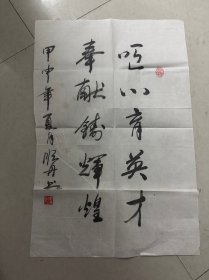 呕心育英才
奉献铸辉煌
甲申年夏月